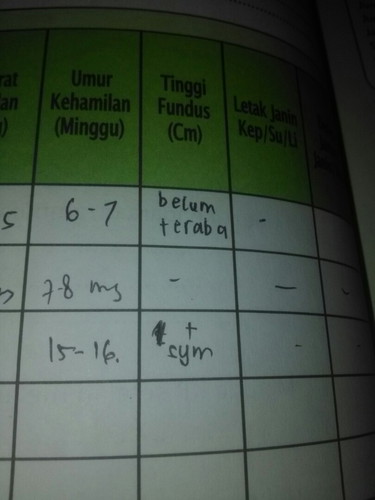 Umur
Kehamilan
(Minggu)
Tinggi
Fundus
(Cm)
Letak Janin
Kep/Su/Li
5
6-7
belum
teraba
-
7-8 mg
-
-
-
15-16.
+
sym
-
-